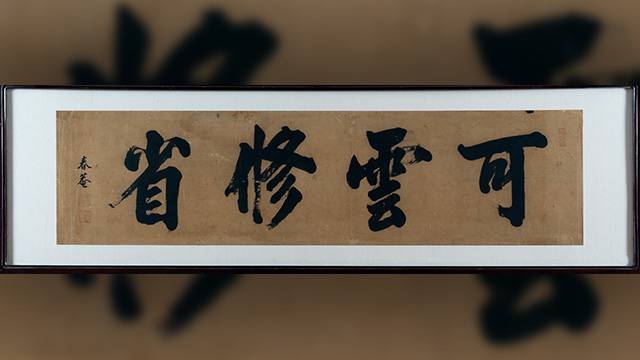 可雲修省
春菴